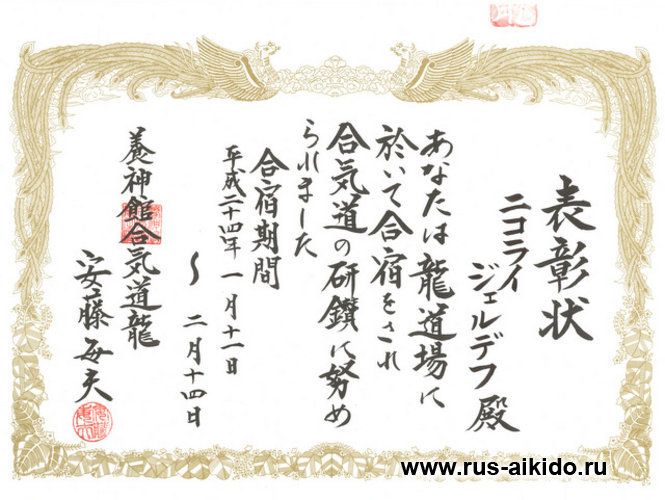 表彰状
ニコライ
ジェルデフ殿
あなたは龍道場に
於いて合宿をされ
合気道の研鑽に努め
られました
合宿期間
平成二十四年一月十一日
～二月十四日
養神館合気道龍
安藤毎夫
www.rus-aikido.ru